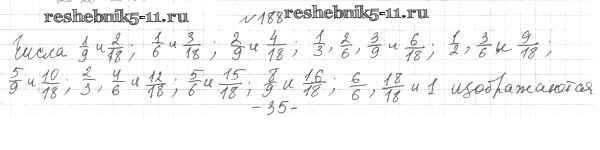 reshebnik5-11.ru №188 reshebnik5-11.ru
Числа 1/9 и 2/18; 1/6 и 3/18; 2/9 и 4/18; 1/3, 2/6, 3/9 и 6/18; 1/2, 3/6 и 9/18;
5/9 и 10/18; 2/3, 4/6 и 12/18; 5/6 и 15/18; 8/9 и 16/18; 6/6, 18/18 и 1 изображаются
-35-